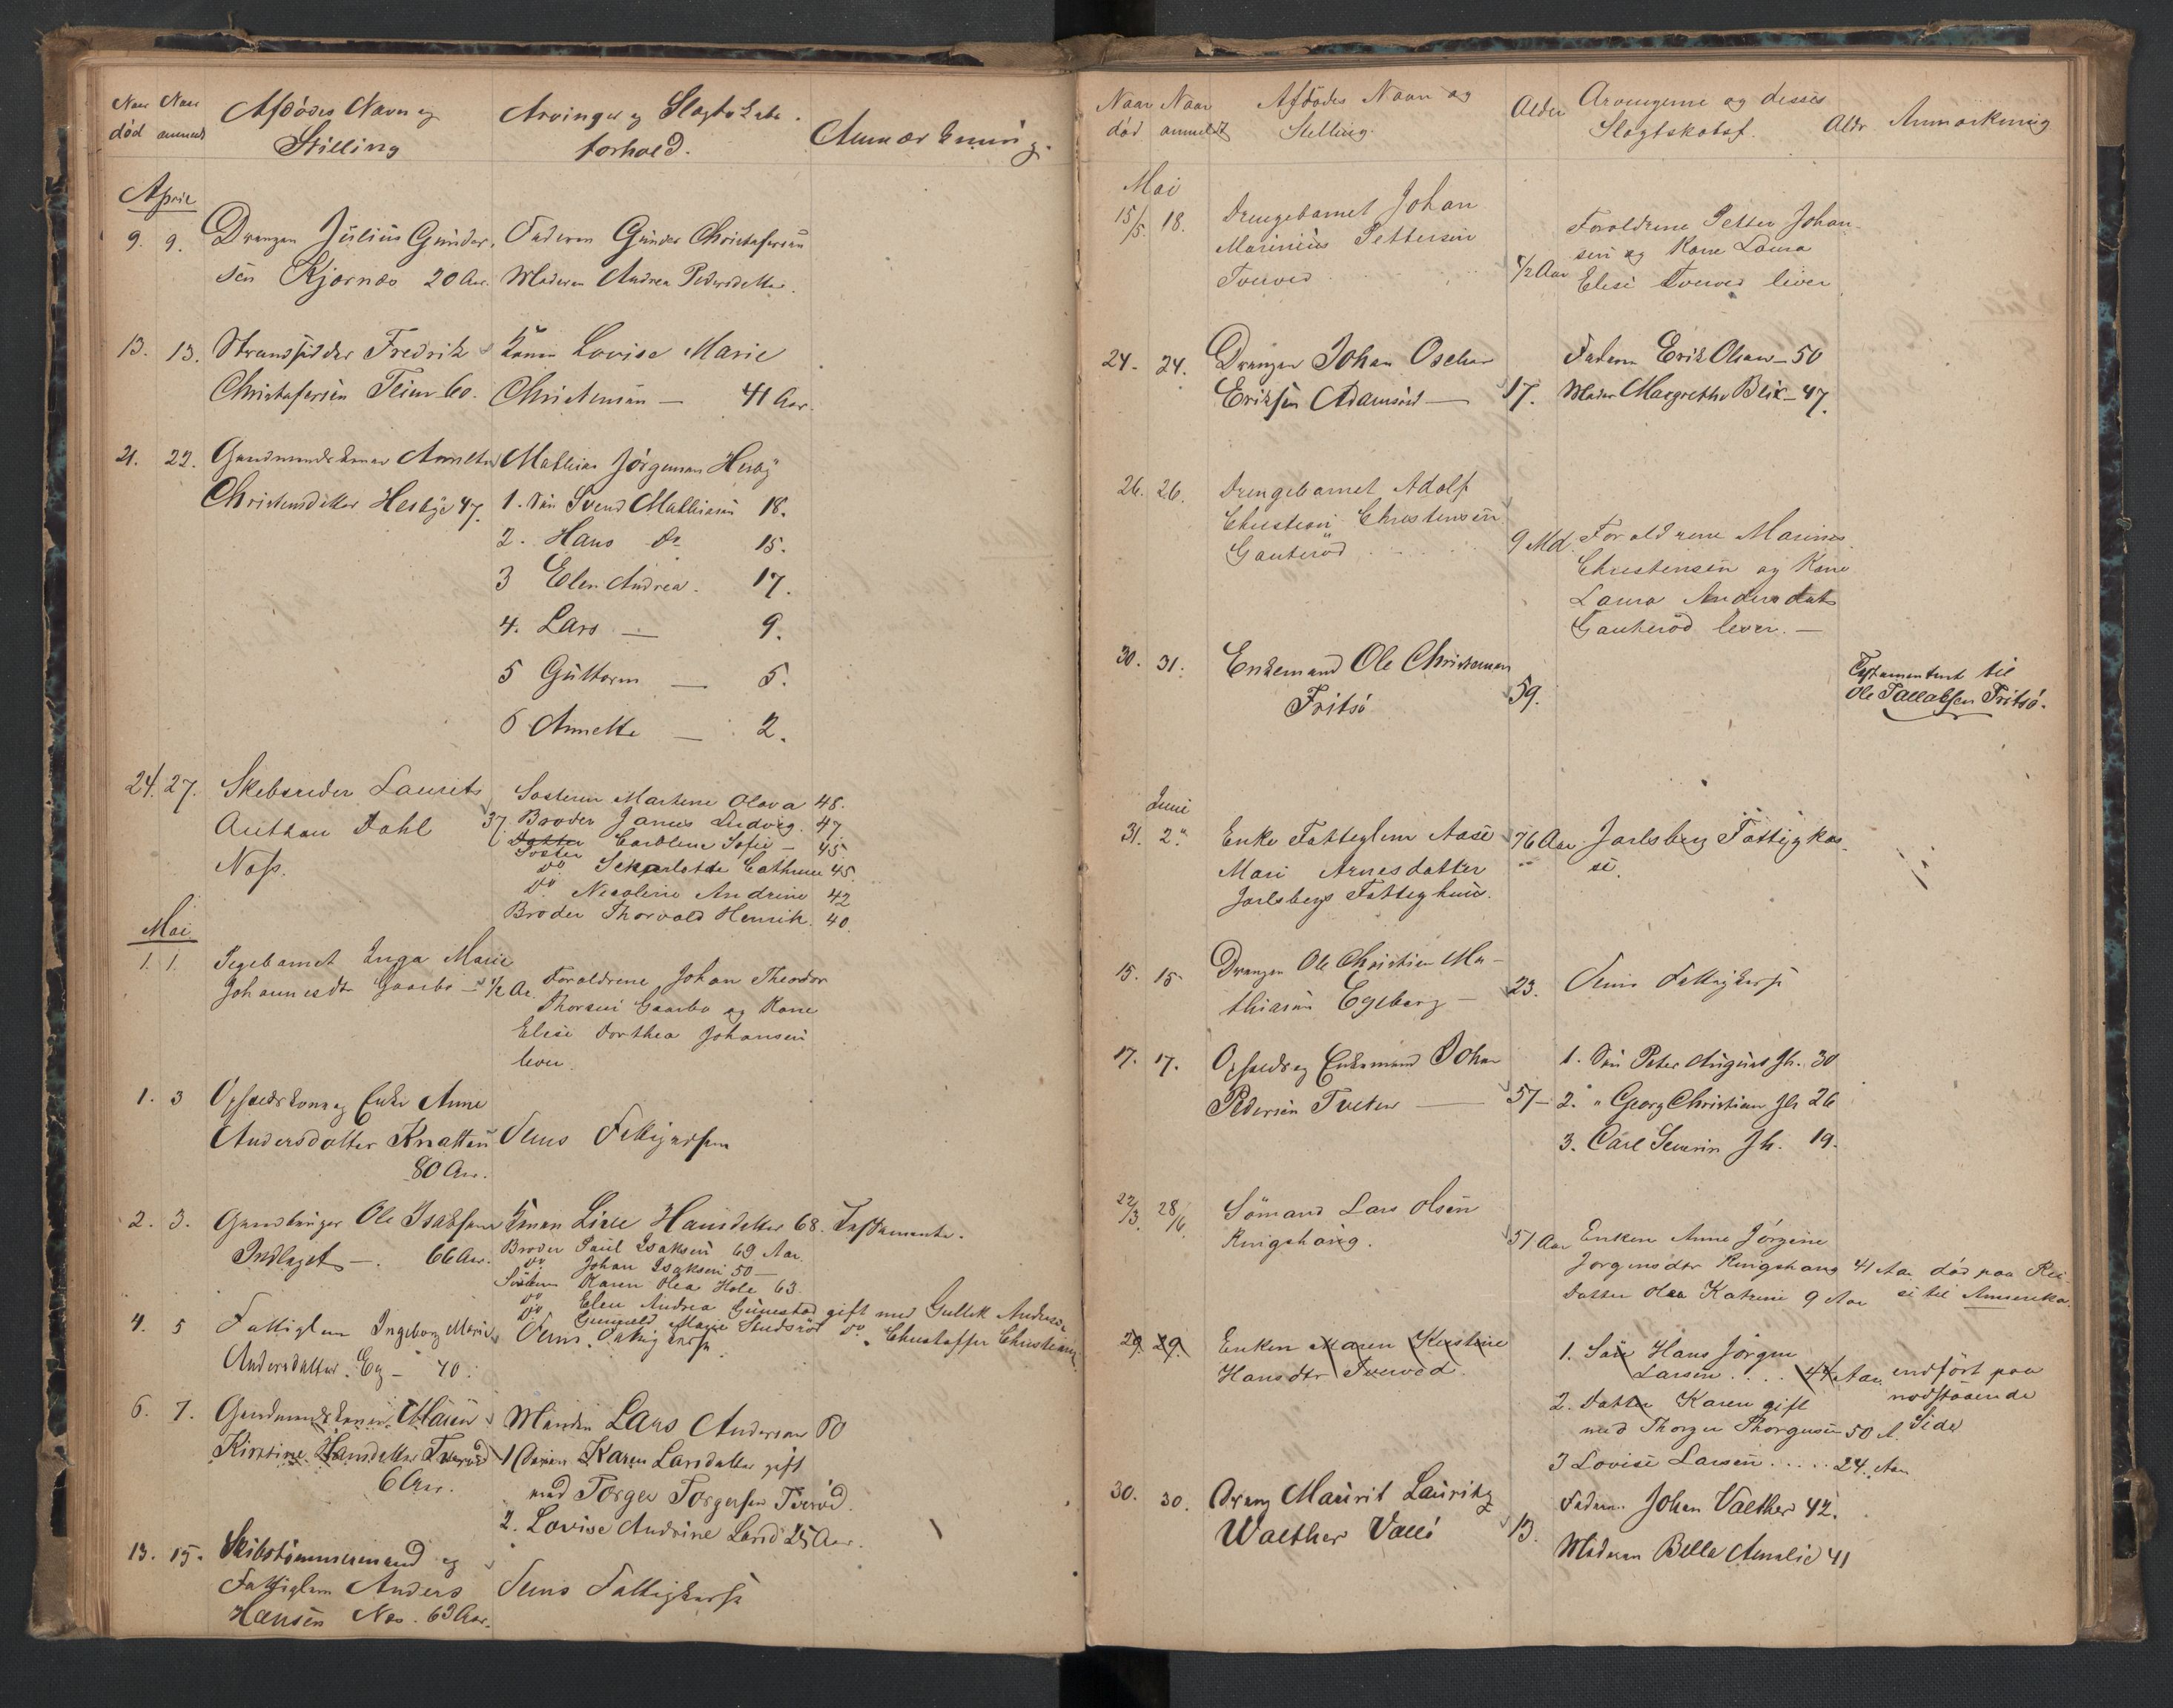 Naar Naar Afdødes Navn og Arvinger og Slægtskabs-
død anmeldt Stilling forhold. Anmærkning.
April
9. 9. Drengen Julius Gunder- Faderen Gunder Christofersen
sen Kjærnæs 20 Aar. Moderen Andrea Pedersdatter.
13. 13. Strandsidder Fredrik Konen Lovise Marie
Christofersen Teien 60. Christensen — 41 Aar.
21. 22. Gaardmandskone Annette Mathias Jörgensen Hesby
Christensdatter Hesbye 47. 1. Sön Svend Mathiasen 18.
2. Hans do 15.
3 Elen Andrea. 17.
4. Lars — 9.
5 Guttorm — 5.
6 Annette — 2.
24. 27. Skibsreder Laurits Søsteren Martine Olava 48.
Anthon Dahl 37. Broder Janus Ludvig. 47.
Datter Søster Caroline Sofie — 45
Næss. do Scharlotte Cathrine 45.
do Nicoline Andrine 42
Broder Thorvald Henrik. 40.
Mai
1. 1. Pigebarnet Inga Marie
Johannesdtr Gaarbo — 1/2 Aar Forældrene Johan Theodor
Thorsen Gaarbo og Kone
Elise Dorthea Johansen
lever.
1. 3 Opholdskone og Enke Anne
Andersdatter Knatten Sems Fattigkasse
80 Aar.
2. 3. Gaardbruger Ole Isaksen Konen Lise Hansdatter 68. Testamente.
Indlaget —. 66 Aar. Broder Paul Isaksen 69 Aar.
do Johan Isaksen 50 —
Søsteren Karen Olea Hole 63
do Elen Andrea Gunestad gift med Gullik Andersen
do Gunnild Marie Studsröd do " Christoffer Christians
4. 5 Fattiglem Ingeborg Marie Sems Fattigkasse.
Andersdatter Eg — 70.
6. 7. Gaardmandskonen Maren Manden Lars Andersen 80
Kirstine Hansdatter Tverved 1 Karen Larsdatter gift
6 Aar. med Torger Torgersen Tveröd.
2. Lovise Andrine Larsd 25 Aar.
13. 15. Skibstömmermand og
Fattiglem Anders Sems Fattigkasse
Hansen Nes. 63 Aar.
Naar Naar Afdødes Navn og Alder Arvingerne og disses
død anmeldt Stilling. Slegtskabsf. Aldr Anmærkning
Mai
15/5 18. Drengebarnet Johan Forældrene Petter Johan
Marinius Pettersen sen og Kone Laura
Tverved 1/2 Aar Elise Tverved lever
24. 24. Drengen Johan Oscher Faderen Erik Olsen — 50
Eriksen Adamsröd — 17. Moder Margrethe Blix — 47.
26. 26. Drengebarnet Adolf
Christian Christensen
Gauteröd 9 Md. Forældrene Marinus
Christensen og Kone
Laura Andersdatr
Gauteröd lever. —
30. 31. Enkemand Ole Christensen Testamentert til
Fritsö 59. Ole Tallaksen Fritsö.
Juni
31. 2. Enke Fattiglem Aase 76 Aar Jarlsberg Fattigkas
Mari Arnesdatter se.
Jarlsbergs Fattighuus.
15. 15 Drengen Ole Christian Ma-
thiasen Egeberg — 23. Sems Fattigkasse
17. 17. Opholds og Enkemand Johan 1. Sön Peter August Jh. 30
Pedersen Tveten — 57 — 2. " Georg Christian Jh 26
3. Carl Severin Jh. 19.
22/3 28/6 Sömand Lars Olsen
Ringshaug. 51 Aar Enken Anne Jørgine
Jørgensdtr Ringshaug 41 Aar. død paa Rei-
Datter Olea Katrine 9 Aar se til Amerika.
29. 29. Enken Maren Kirstine 1. Sön Hans Jørgen
Hansdtr Tverved. Larsen . . . . 44 Aar. indført paa
2. Datter Karen gift modstaaende
med Thorger Thorgersen 50 A. Side
3 Lovise Larsen . . . . . 24. Aar
30. 30. Dreng Maurit Lauritz Faderen Johan Valther 42.
Walther Vallö 13. Moderen Bella Amalie 41